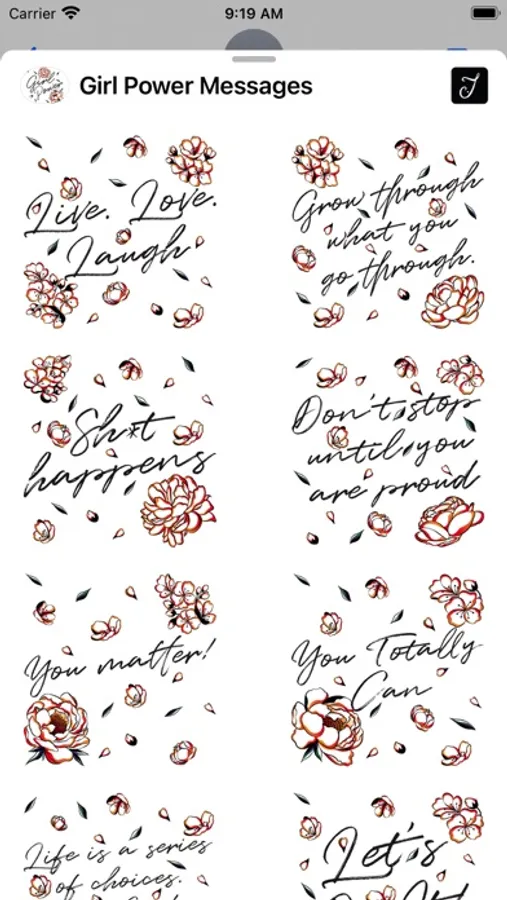 Carrier 9:19 AM
Girl Power Girl Power Messages
Live. Love.
Laugh
Grow through
what you
go through.
Sh*t
happens
Don't stop
until you
are proud
You matter!
You Totally
Can
Life is a series
of choices.
Let's